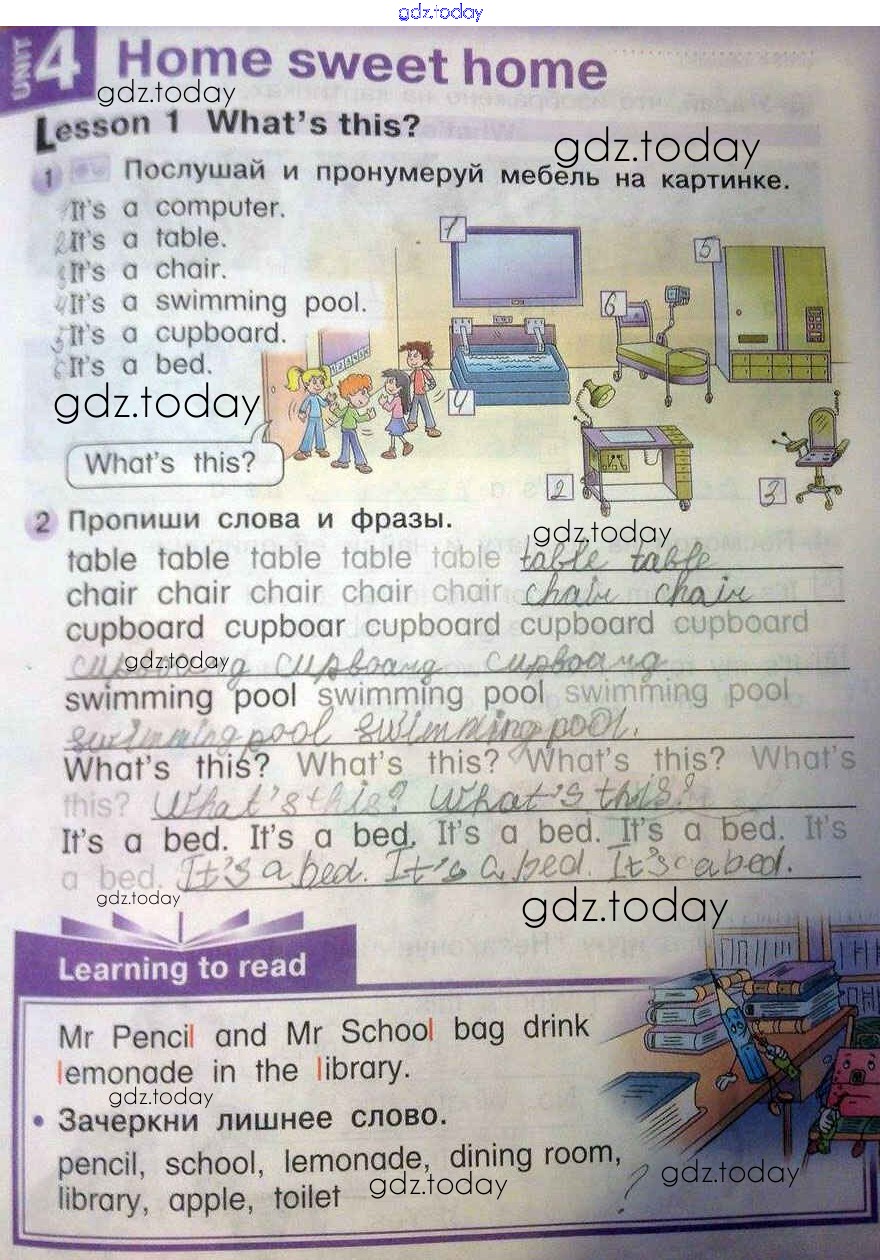 gdz.today
UNIT 4 Home sweet home
gdz.today
Lesson 1 What's this?
gdz.today
1 Послушай и пронумеруй мебель на картинке.
1 It's a computer.
2 It's a table.
3 It's a chair.
4 It's a swimming pool.
5 It's a cupboard.
6 It's a bed.
1
5
6
4
2
3
gdz.today
What's this?
2 Пропиши слова и фразы.
gdz.today
table table table table table table table
chair chair chair chair chair chair chair
cupboard cupboar cupboard cupboard cupboard
cupboang cupboang cupboang
gdz.today
swimming pool swimming pool swimming pool
swimming pool swimming pool.
What's this? What's this? What's this? What's
this? What's this? What's this?
It's a bed. It's a bed. It's a bed. It's a bed. It's
a bed. It's a bed. It's a bed. It's a bed.
gdz.today
gdz.today
Learning to read
Mr Pencil and Mr School bag drink
lemonade in the library.
gdz.today
• Зачеркни лишнее слово.
pencil, school, lemonade, dining room,
library, apple, toilet ?
gdz.today
gdz.today